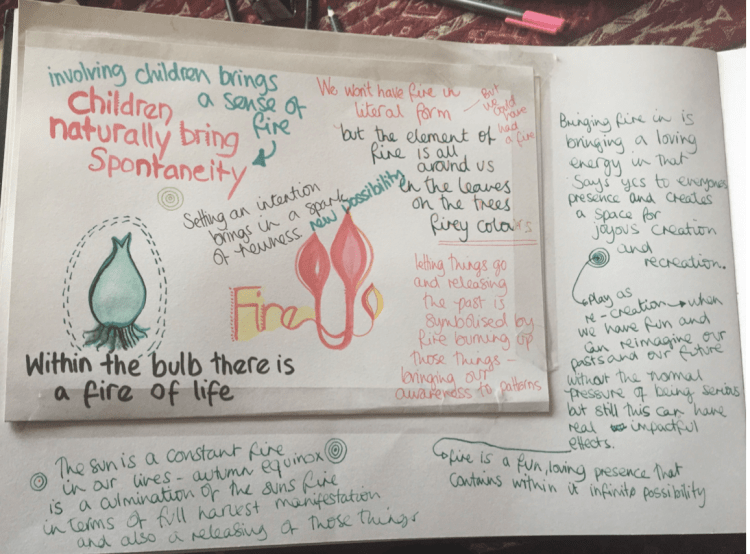 involving children brings
a sense of
fire
Children
naturally bring
Spontaneity
We won't have fire in
literal form
But
we
could
have
had
a fire
but the element of
fire is all
around us
in the leaves
on the trees
firey colours
Setting an intention
brings in a spark
of newness. new possibility
Fire
Within the bulb there is
a fire of life
letting things go
and releasing
the past is
symbolised by
fire burning up
those things –
bringing our
awareness to patterns
Bringing fire in is
bringing a loving
energy in that
says yes to everyones
presence and creates
a space for
joyous creation
and
recreation.
Play as
re-creation when
we have fun and
can reimagine our
pasts and our future
without the normal
pressure of being serious
but still this can have
real impactful
effects.
fire is a fun, loving presence that
contains within it infinite possibility
The sun is a constant fire
in our lives – autumn equinox
is a culmination of the suns fire
in terms of full harvest manifestation
and also a releasing of those things